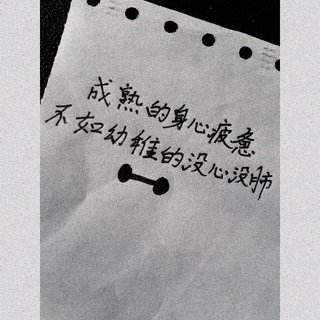 成熟的身心疲惫
不如幼稚的没心没肺